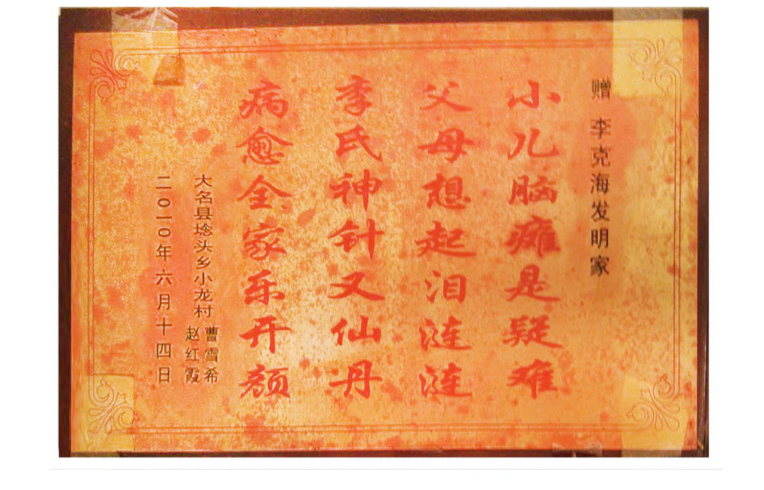 赠 李克海发明家
小儿脑瘫是疑难
父母想起泪涟涟
李氏神针又仙丹
病愈全家乐开颜
大名县埝头乡小龙村 曹雪希
赵红霞
二〇一〇年六月十四日